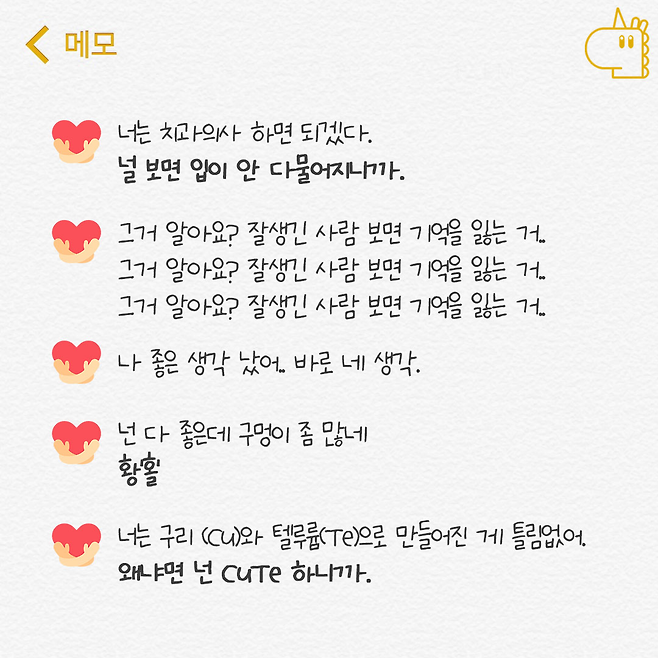 메모
너는 치과의사 하면 되겠다.
널 보면 입이 안 다물어지니까.
그거 알아요? 잘생긴 사람 보면 기억을 잃는 거..
그거 알아요? 잘생긴 사람 보면 기억을 잃는 거..
그거 알아요? 잘생긴 사람 보면 기억을 잃는 거..
나 좋은 생각 났어.. 바로 네 생각.
넌 다 좋은데 구멍이 좀 많네
황홀
너는 구리 (Cu)와 텔루륨(Te)으로 만들어진 게 틀림없어.
왜냐면 넌 CuTe 하니까.